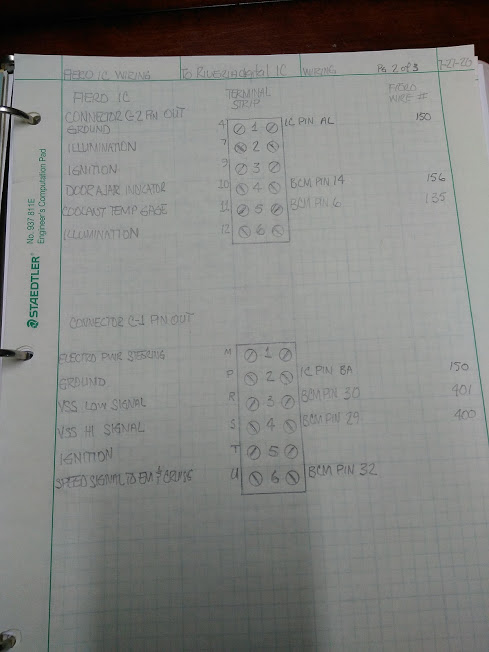 FIERO IC WIRING To RIVERIA digital IC WIRING PG 2 of 3 7-27-20
FIERO IC TERMINAL STRIP FIELD WIRE #
CONNECTOR C-2 PIN OUT
GROUND 4 1 IC PIN AL 150
ILLUMINATION 7 2
IGNITION 9 3
DOOR AJAR INDICATOR 10 4 BCM PIN 14 156
COOLANT TEMP GAGE 11 5 BCM PIN 6 135
ILLUMINATION 12 6
CONNECTOR C-1 PIN OUT
ELECTRO PWR STEERING M 1
GROUND P 2 IC PIN BA 150
VSS LOW SIGNAL R 3 BCM PIN 30 401
VSS HI SIGNAL S 4 BCM PIN 29 400
IGNITION T 5
SPEED SIGNAL TO EM & CRUISE U 6 BCM PIN 32
STAEDTLER
No. 937 811E
Engineer's Computation Pad